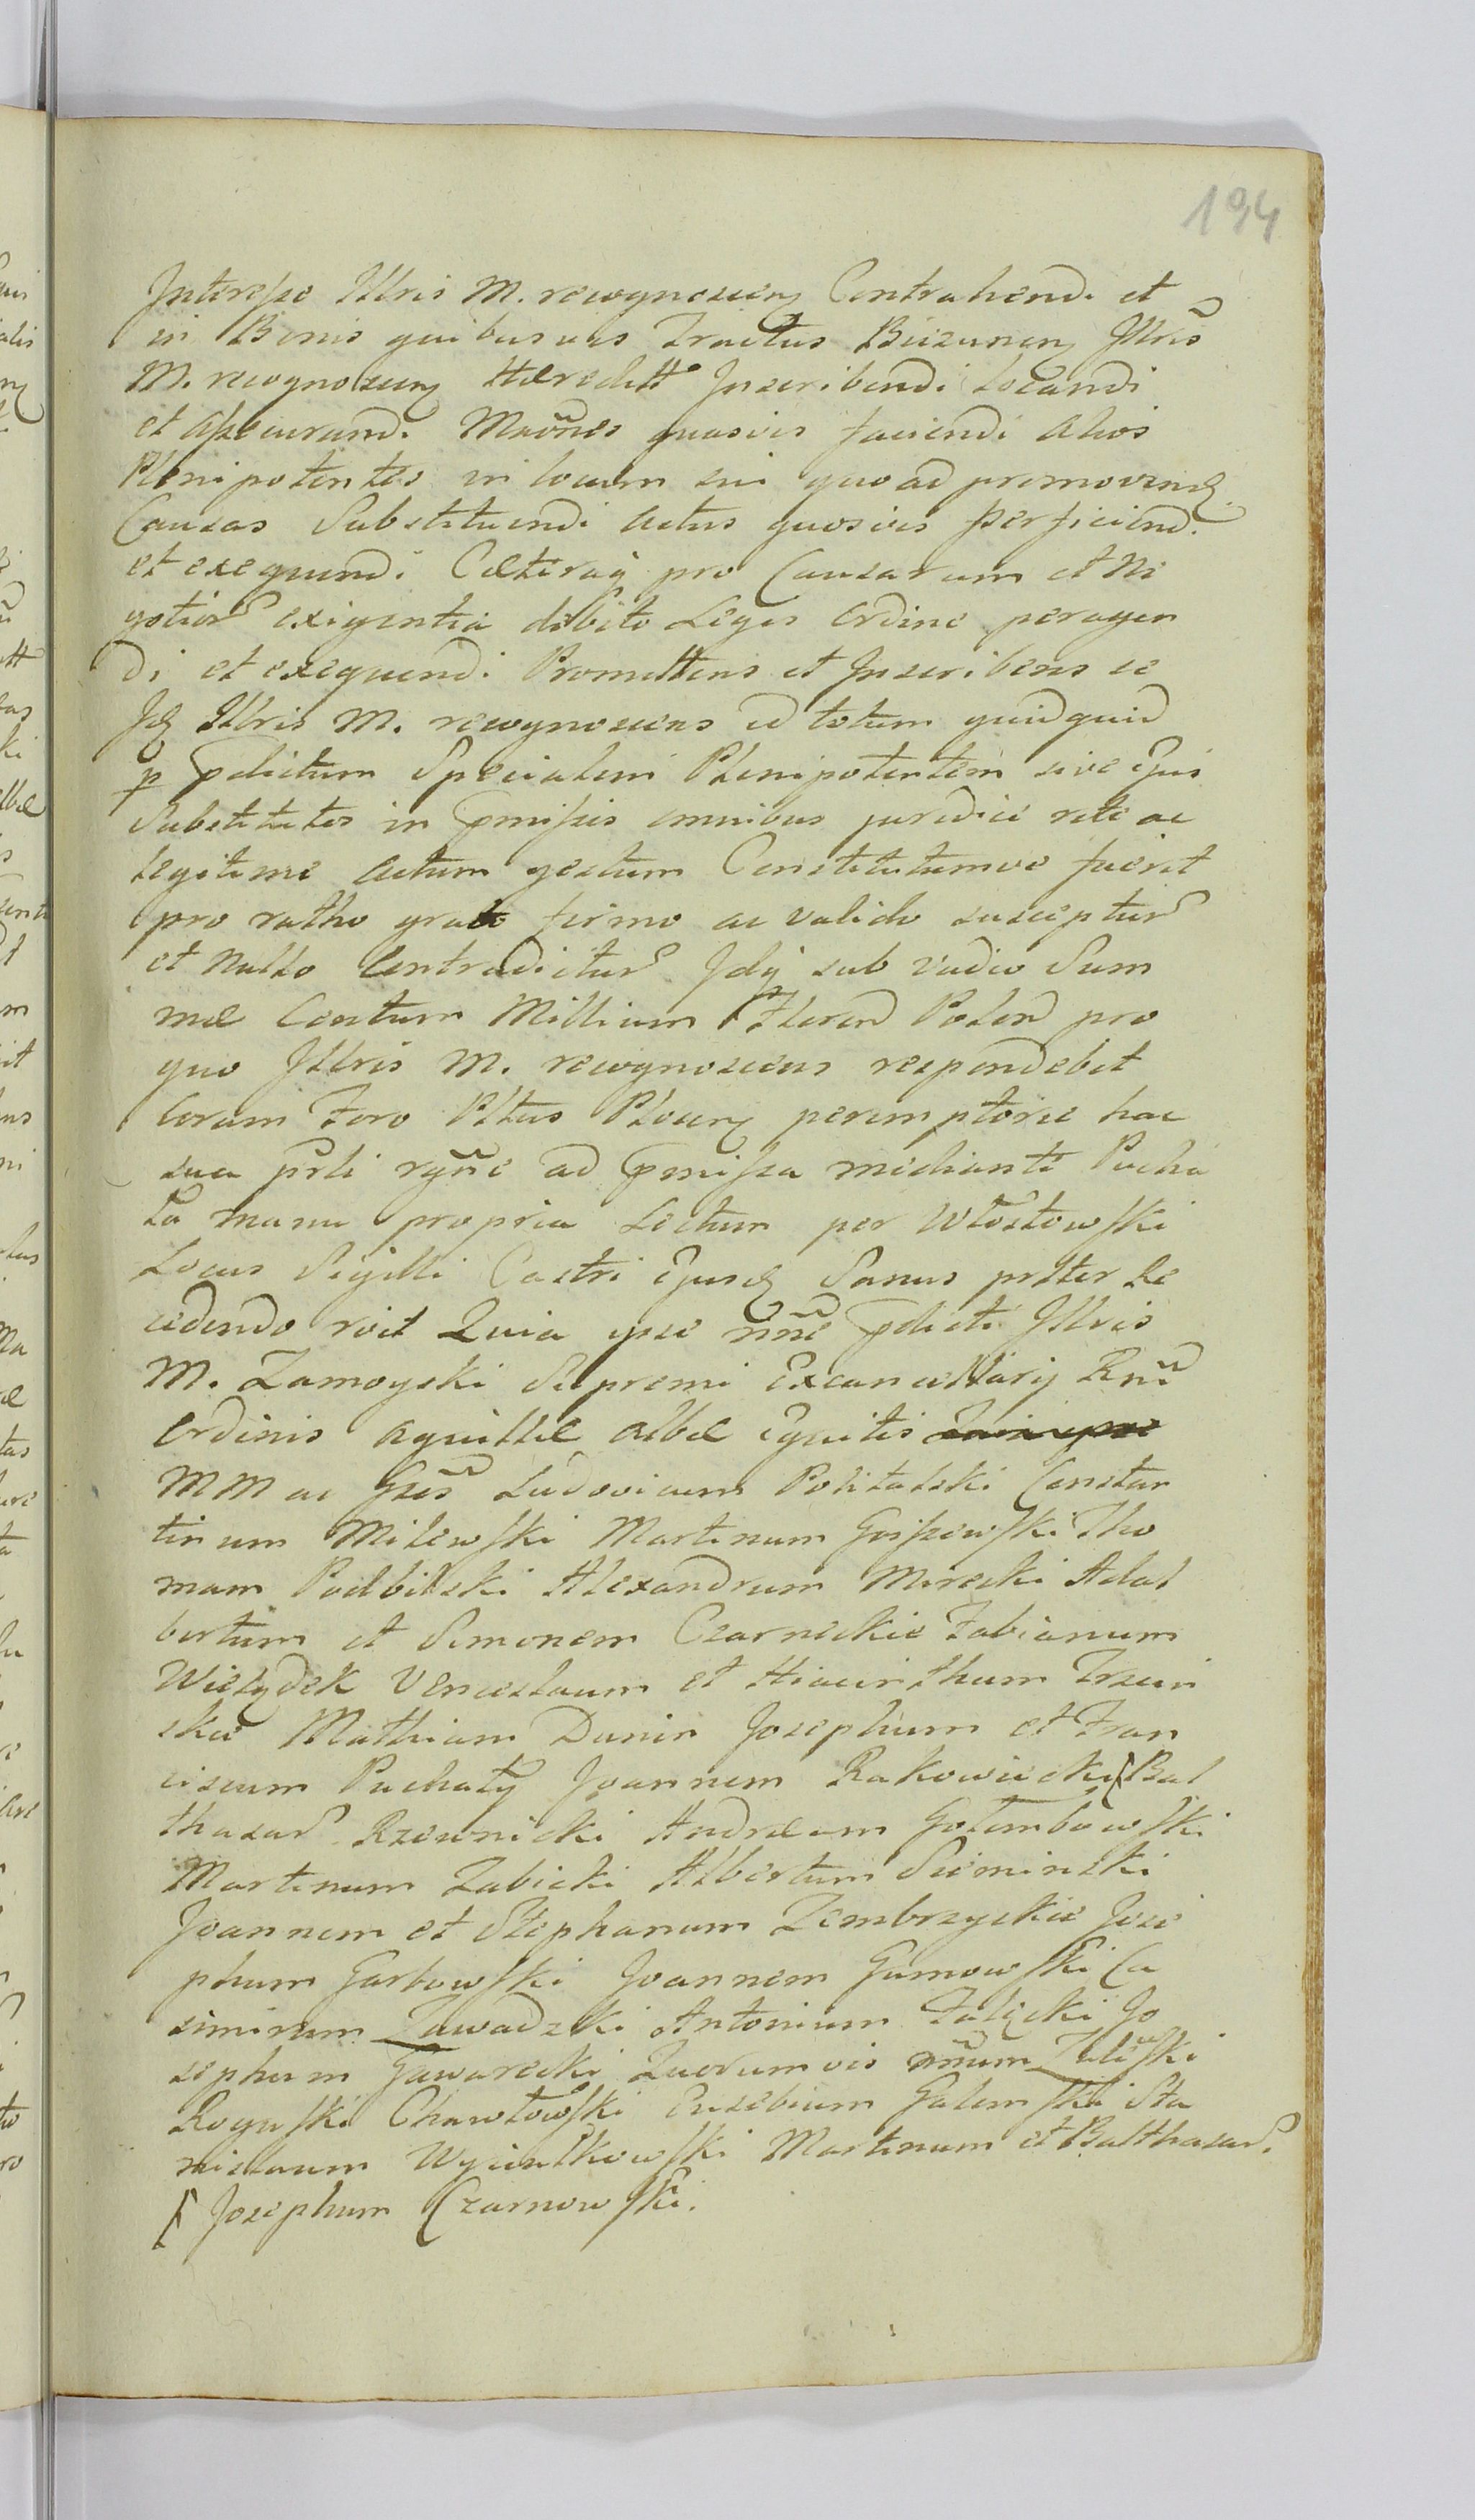 194
Interesse Illris M. recognoscen Contrahendi et
in Bonis quibusvis Tractus Biezunen Illris
M. recognoscen Haeredit Inscribendi Locandi
et assecurandi Mraõnes quasvis faciendi alios
Plenipotentes in locum sui quoad promovend
Causas Substituendi actus quosvis perficiend.
et exequendi Caeteraq pro Causarum et Ne
gotior exigentia debito Legis ordine peragen
di et exequendi Promittens et Inscribens se
Id Illris M. recognoscens id totum quidquid
p pdictum Specialem Plenipotentem sive Ejus
Substitutos in pmissis omnibus juridice rite ac
legitime actum gestum Constitutumve fuerit
pro ratho grato firmo ac valido susceptur
et nullo Contradictur Idq sub vadio Sum
mae Centum Millium Floren Polon pro
quo Illris M. recognoscens respondebit
Coram Foro Pltus Plocen peremptorie hac
sua prti rgñe ad pmissa mediante Pucha
ta manu propria Lectum per Włostowski
Locus Sigilli Castri Ejusd Sanus prster Re
cedendo roit Quia ipse nñe pdicti Illris
M. Zamoyski Supremi Excancellarij Rni
Ordinis aquillae albae Equitis Quia ipse
MM ac Gsos Ludovicum Politalski Constan
tinum Milewski Martinum Gosszewski Tho
mam Podbilski Alexandrum Mirecki Adal
bertum et Simonem Czarneckie Fabianum
Wielgdek Venceslaum et Hiacinthum Trzcin
skie Mathiam Dunin Josephum et Fran
ciscum Puchaty Joannem Rakowiecki Bal
thasar Rzewnicki Andream Gołembowski
Martinum Zabicki Albertum Sieminski
Joannem et Stephanum Zembrzyckie Jose
phum Garbowski Joannem Gumowski Ca
simirum Zawadzki Antonium Falęcki Jo
sephum Gawarecki Quorumvis nñum Zaliski
Rogusk Chawłowski Eusebium Galemski Sta
nislaum Wyciułkowski Martinum et Balthasar.
Josephum Czarnowski.